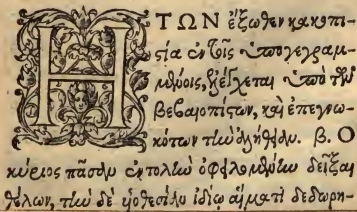 Η ΤΩΝ ἔξωθεν κακοπι-
στία ἐν τοῖς ὑπογεγραμ-
μένοις, ἐλέγχεται ὑπὸ τῶν
βεβαιοπίστων, καὶ ἐπεγνω-
κότων τὴν ἀλήθειαν. β. Ὁ
κύριος πᾶσαν ἐντολὴν ὀφειλομένην δεῖξαι
θέλων, τὴν δὲ υἱοθεσίαν ἰδίῳ αἵματι δεδωρη-